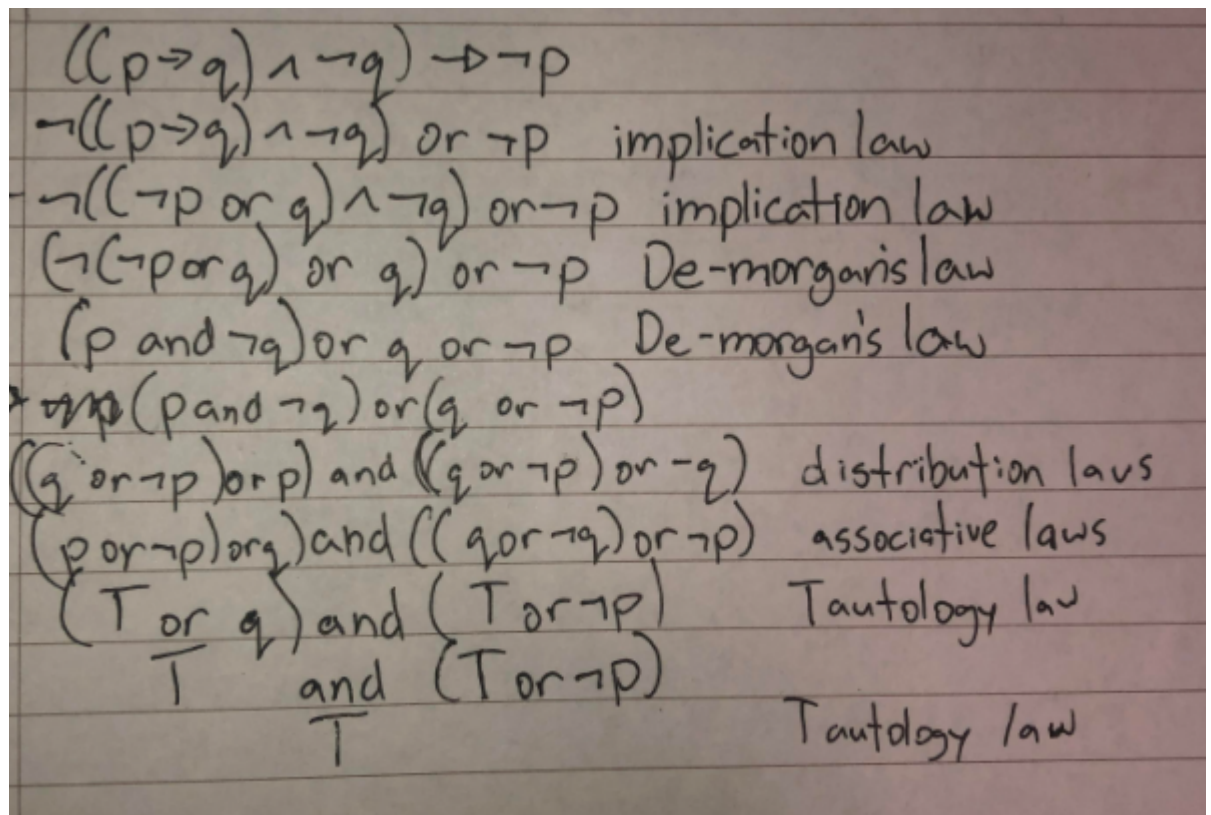 ((p→q) ∧ ¬q) → ¬p
¬((p→q) ∧ ¬q) or ¬p implication law
¬((¬p or q) ∧ ¬q) or ¬p implication law
(¬(¬p or q) or q) or ¬p De-morgan's law
(p and ¬q) or q or ¬p De-morgan's law
(p and ¬q) or (q or ¬p)
((q or ¬p) or p) and ((q or ¬p) or -q) distribution laws
(p or ¬p) or q) and ((q or ¬q) or ¬p) associative laws
(T or q) and (T or ¬p) Tautology law
T and (T or ¬p)
T Tautology law